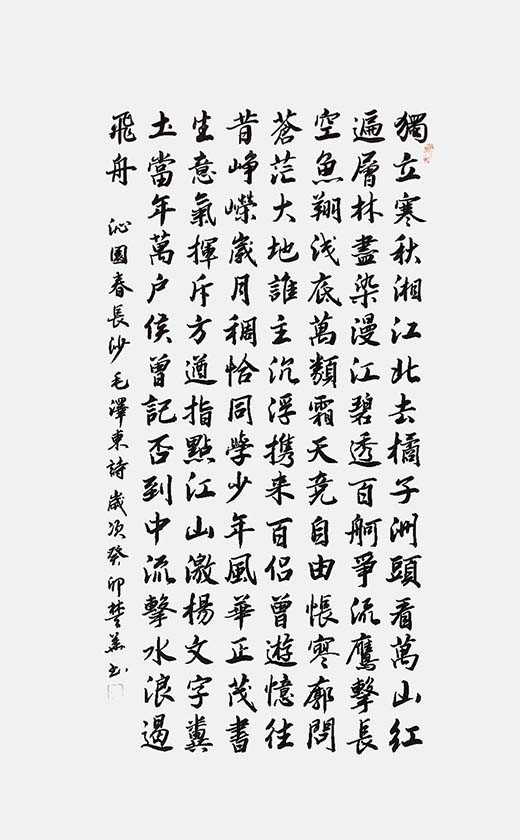 獨立寒秋湘江北去橘子洲頭看萬山红
遍層林盡染漫江碧透百舸爭流鷹擊長
空魚翔浅底萬類霜天竞自由悵寥廓問
蒼茫大地誰主沉浮携来百侣曾遊憶往
昔峥嶸歲月稠恰同學少年風華正茂書
生意氣揮斥方遒指點江山激楊文字糞
土當年萬户侯曾記否到中流擊水浪遏
飛舟
沁園春長沙毛澤東詩歲次癸卯楚书